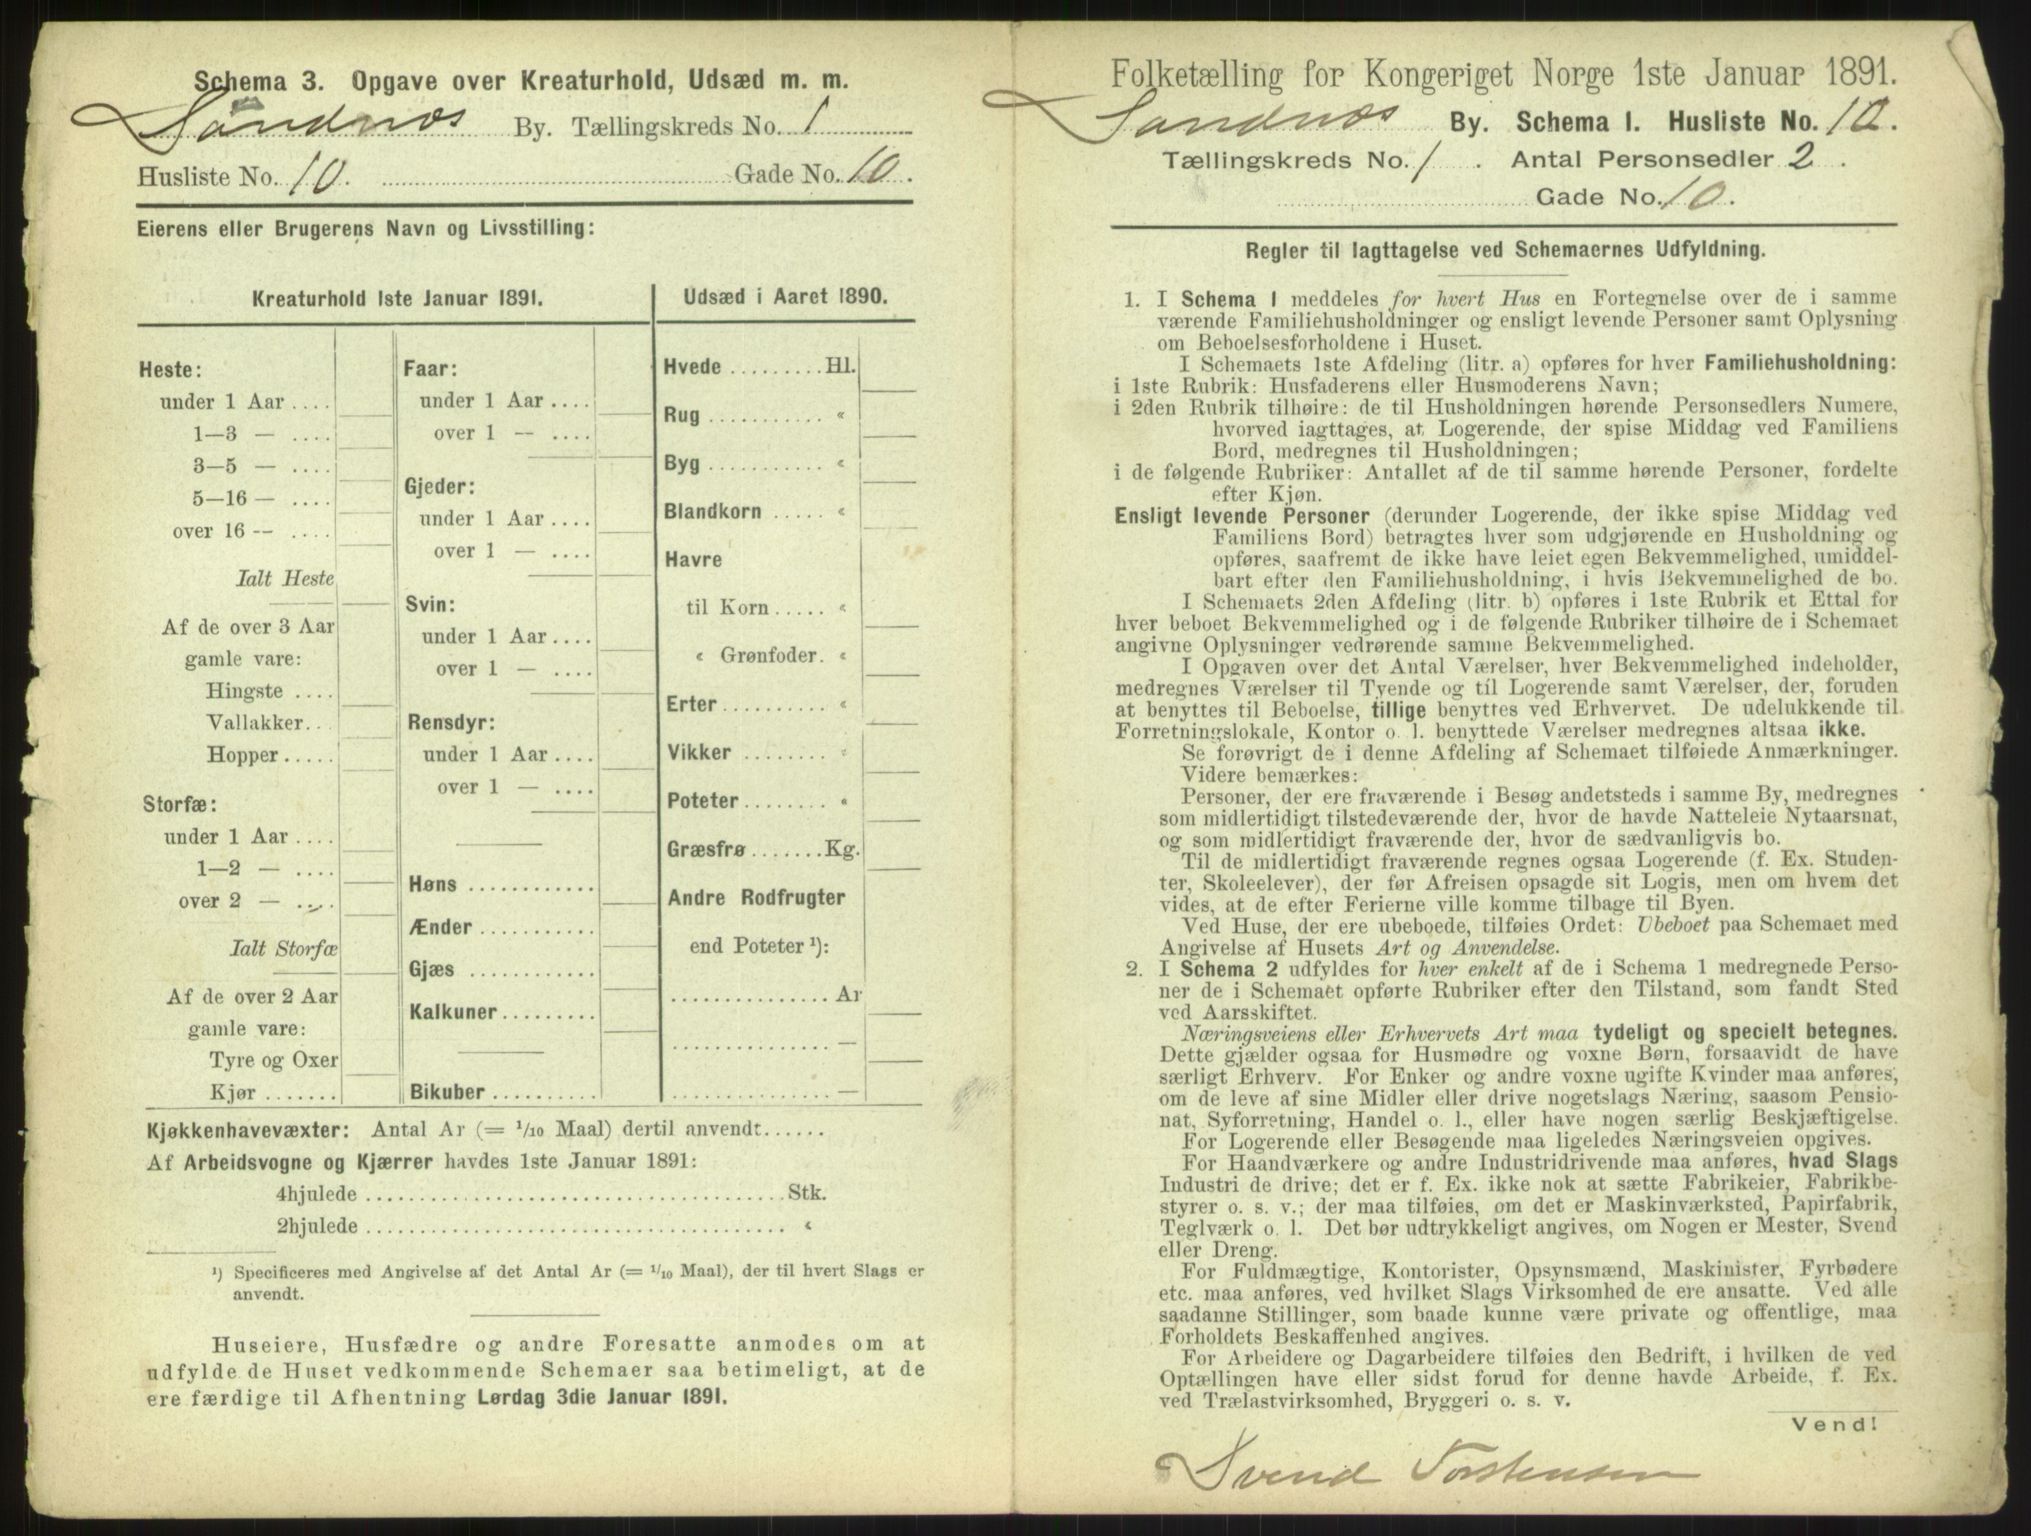 Schema 3. Opgave over Kreaturhold, Udsæd m. m.
Sandnæs By. Tællingskreds No. 1
Husliste No. 10. Gade No. 10.
Eierens eller Brugerens Navn og Livsstilling:
Kreaturhold 1ste Januar 1891.
Heste:
under 1 Aar ....
1—3 — ....
3—5 — ....
5—16 — ....
over 16 — ....
Ialt Heste
Af de over 3 Aar
gamle vare:
Hingste ....
Vallakker...
Hopper.....
Storfæ:
under 1 Aar ....
1—2 — ....
over 2 — ....
Ialt Storfæ
Af de over 2 Aar
gamle vare:
Tyre og Oxer
Kjør .......
Faar:
under 1 Aar ....
over 1 — ....
Gjeder:
under 1 Aar ....
over 1 — ....
Svin:
under 1 Aar ....
over 1 — ....
Rensdyr:
under 1 Aar ....
over 1 — ....
Høns ............
Ænder ...........
Gjæs ............
Kalkuner.........
Bikuber ..........
Udsæd i Aaret 1890.
Hvede .........Hl.
Rug ........... «
Byg ........... «
Blandkorn ..... «
Havre
til Korn ..... «
« Grønfoder. «
Erter .......... «
Vikker ........ «
Poteter ........ «
Græsfrø .......Kg.
Andre Rodfrugter
end Poteter ¹):
............... Ar
............... —
............... —
Kjøkkenhavevæxter: Antal Ar (= 1/10 Maal) dertil anvendt......
Af Arbeidsvogne og Kjærrer havdes 1ste Januar 1891:
4hjulede ........................................Stk.
2hjulede ........................................ «
¹) Specificeres med Angivelse af det Antal Ar (= 1/10 Maal), der til hvert Slags er
anvendt.
Huseiere, Husfædre og andre Foresatte anmodes om at
udfylde de Huset vedkommende Schemaer saa betimeligt, at de
ere færdige til Afhentning Lørdag 3die Januar 1891.
Folketælling for Kongeriget Norge 1ste Januar 1891.
Sandnæs By. Schema I. Husliste No. 10.
Tællingskreds No. 1 . Antal Personsedler 2 .
Gade No. 10.
Regler til Iagttagelse ved Schemaernes Udfyldning.
1. I Schema 1 meddeles for hvert Hus en Fortegnelse over de i samme
værende Familiehusholdninger og ensligt levende Personer samt Oplysning
om Beboelsesforholdene i Huset.
I Schemaets 1ste Afdeling (litr. a) opføres for hver Familiehusholdning:
i 1ste Rubrik: Husfaderens eller Husmoderens Navn;
i 2den Rubrik tilhøire: de til Husholdningen hørende Personsedlers Numere,
hvorved iagttages, at Logerende, der spise Middag ved Familiens
Bord, medregnes til Husholdningen;
i de følgende Rubriker: Antallet af de til samme hørende Personer, fordelte
efter Kjøn.
Ensligt levende Personer (derunder Logerende, der ikke spise Middag ved
Familiens Bord) betragtes hver som udgjørende en Husholdning og
opføres, saafremt de ikke have leiet egen Bekvemmelighed, umiddel-
bart efter den Familiehusholdning, i hvis Bekvemmelighed de bo.
I Schemaets 2den Afdeling (litr. b) opføres i 1ste Rubrik et Ettal for
hver beboet Bekvemmelighed og i de følgende Rubriker tilhøire de i Schemaet
angivne Oplysninger vedrørende samme Bekvemmelighed.
I Opgaven over det Antal Værelser, hver Bekvemmelighed indeholder,
medregnes Værelser til Tyende og til Logerende samt Værelser, der, foruden
at benyttes til Beboelse, tillige benyttes ved Erhvervet. De udelukkende til
Forretningslokale, Kontor o. l. benyttede Værelser medregnes altsaa ikke.
Se forøvrigt de i denne Afdeling af Schemaet tilføiede Anmærkninger.
Videre bemærkes:
Personer, der ere fraværende i Besøg andetsteds i samme By, medregnes
som midlertidigt tilstedeværende der, hvor de havde Natteleie Nytaarsnat,
og som midlertidigt fraværende der, hvor de sædvanligvis bo.
Til de midlertidigt fraværende regnes ogsaa Logerende (f. Ex. Studen-
ter, Skoleelever), der før Afreisen opsagde sit Logis, men om hvem det
vides, at de efter Ferierne ville komme tilbage til Byen.
Ved Huse, der ere ubeboede, tilføies Ordet: Ubeboet paa Schemaet med
Angivelse af Husets Art og Anvendelse.
2. I Schema 2 udfyldes for hver enkelt af de i Schema 1 medregnede Perso-
ner de i Schemaet opførte Rubriker efter den Tilstand, som fandt Sted
ved Aarsskiftet.
Næringsveiens eller Erhvervets Art maa tydeligt og specielt betegnes.
Dette gjælder ogsaa for Husmødre og voxne Børn, forsaavidt de have
særligt Erhverv. For Enker og andre voxne ugifte Kvinder maa anføres,
om de leve af sine Midler eller drive nogetslags Næring, saasom Pensio-
nat, Syforretning, Handel o. l., eller have nogen særlig Beskjæftigelse.
For Logerende eller Besøgende maa ligeledes Næringsveien opgives.
For Haandværkere og andre Industridrivende maa anføres, hvad Slags
Industri de drive; det er f. Ex. ikke nok at sætte Fabrikeier, Fabrikbe-
styrer o. s. v.; der maa tilføies, om det er Maskinværksted, Papirfabrik,
Teglværk o. l. Det bør udtrykkeligt angives, om Nogen er Mester, Svend
eller Dreng.
For Fuldmægtige, Kontorister, Opsynsmænd, Maskinister, Fyrbødere
etc. maa anføres, ved hvilket Slags Virksomhed de ere ansatte. Ved alle
saadanne Stillinger, som baade kunne være private og offentlige, maa
Forholdets Beskaffenhed angives.
For Arbeidere og Dagarbeidere tilføies den Bedrift, i hvilken de ved
Optællingen have eller sidst forud for denne havde Arbeide, f. Ex.
ved Trælastvirksomhed, Bryggeri o. s. v.
Vend!
Svend Torstensen